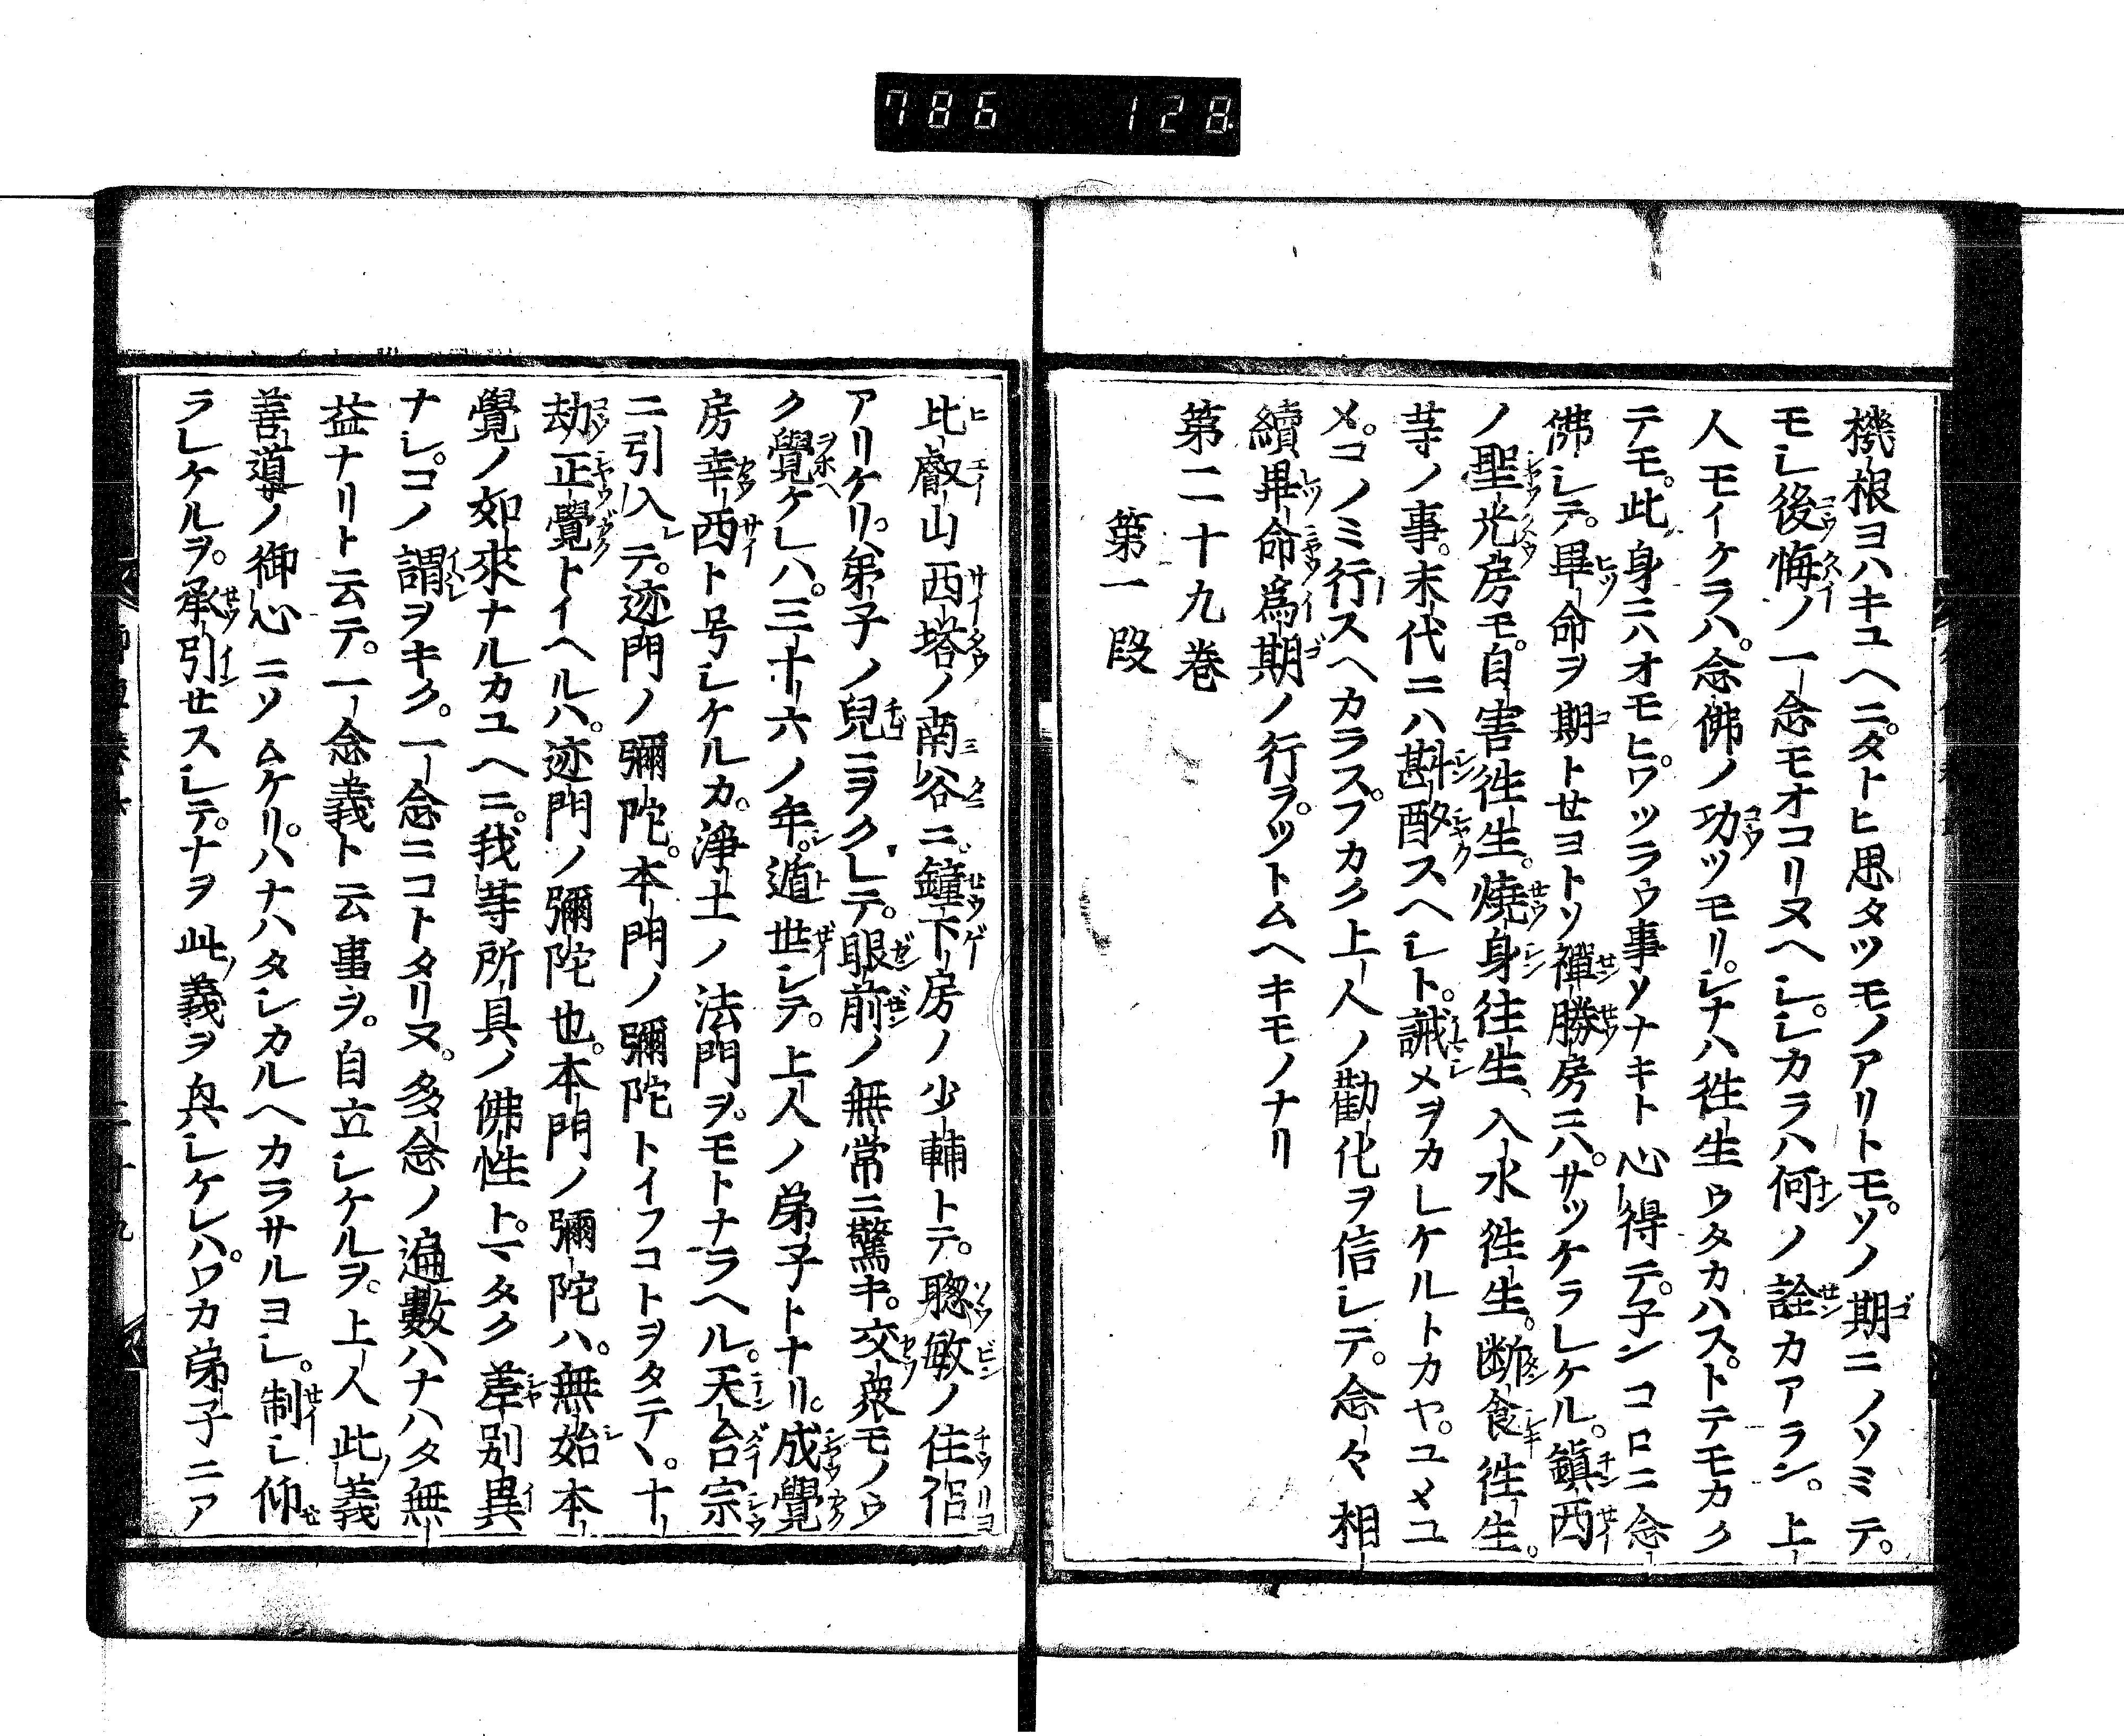 786 128
機根ヨハキユヘニ。タトヒ思タツモノアリトモ。ソノ期ニノソミテ。
モシ後悔ノ一念モオコリヌヘシ。シカラハ何ノ詮カアラン。上
人モイケラハ。念佛ノ功ツモリ。シナハ徃生ウタカハス。トテモカク
テモ。此身ニハオモヒ。ワツラウ事ソナキト心得テ。子ンコロニ念
佛シテ。畢命ヲ期トセヨトソ禪勝房ニハ。サツケラレケル。鎮西
ノ聖光房モ。自害徃生。燒身往生、入水徃生。断食徃生。
䓁ノ事。末代ニハ斟酌スヘシト。誡メヲカレケルトカヤ。ユメユ
メ。コノミ行スヘカラス。フカク上人ノ勸化ヲ信シテ。念々相
續畢命爲期ノ行ヲ。ツトムヘキモノナリ
第二十九巻
第一段
比叡山西塔ノ南谷ニ。鐘下房ノ少輔トテ。聰敏ノ住侶
アリケリ。弟子ノ兒ニヲクレテ。眼前ノ無常ニ驚キ。交衆モノウ
ク覺ケレハ。三十六ノ年。遁世シテ。上人ノ弟子トナリ。成覺
房幸西ト号シケルカ。淨土ノ法門ヲ。モトナラヘル。天台宗
ニ引入テ。迹門ノ彌陀。本門ノ彌陀トイフコトヲタテヽ。十
劫正覺トイヘルハ。迹門ノ彌陀也。本門ノ彌陀ハ。無始本
覺ノ如來ナルカユヘニ。我䓁所具ノ佛性ト。マタク差別異
ナシ。コノ謂ヲキク。一念ニコトタリヌ。多念ノ遍數ハナハタ無
益ナリト云テ。一念義ト云事ヲ。自立シケルヲ。上人此義
善導ノ御心ニソムケリ。ハナハタシカルヘカラサルヨシ。制シ仰
ラレケルヲ。承引セスシテ。ナヲ此義ヲ興シケレハ。ワカ弟子ニア